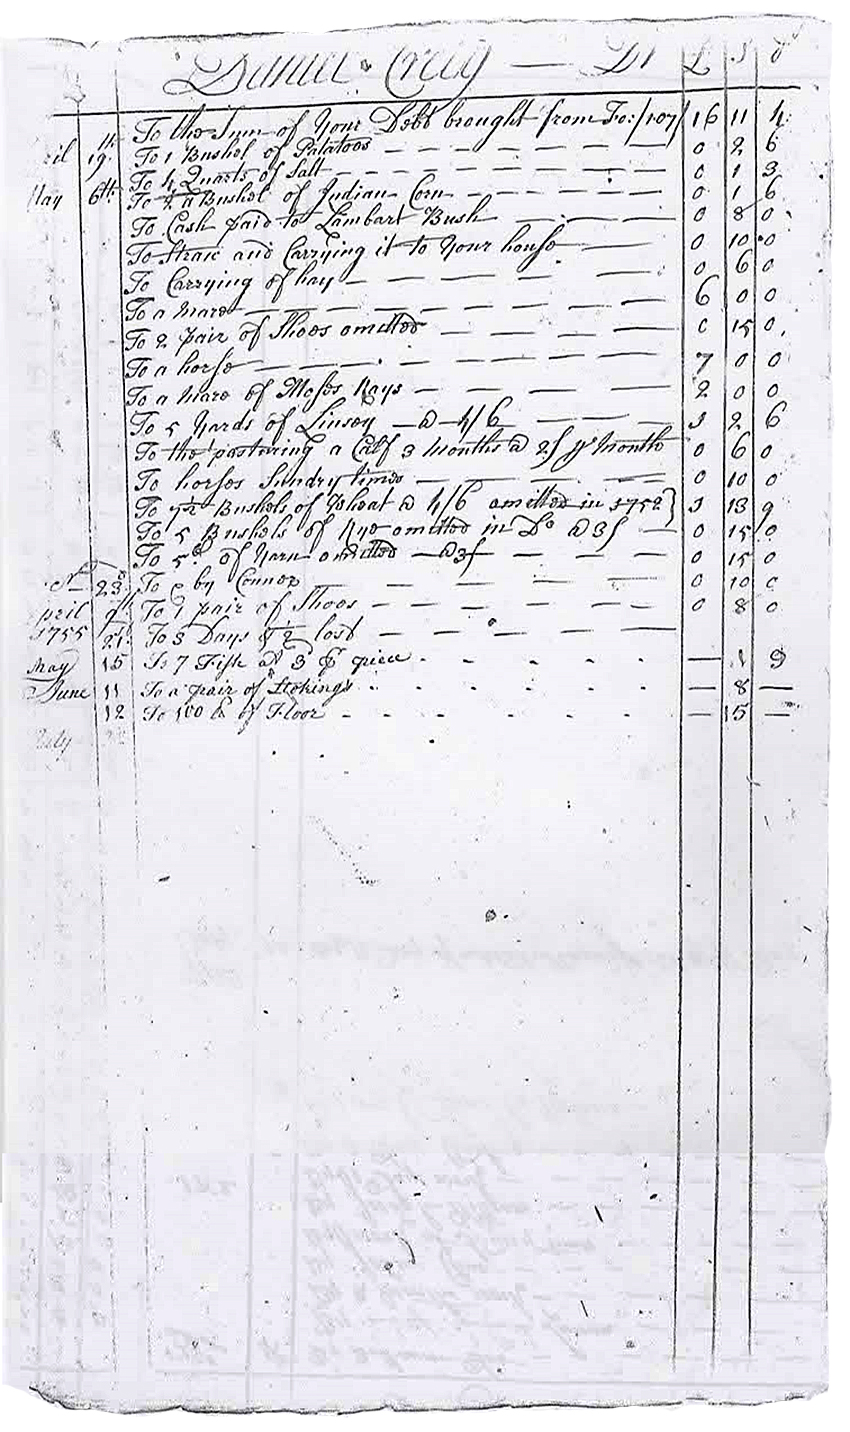 Daniel Craig — Dr £ S d
To the Sum of Your Debt brought from Fo:/107/ 16 11 4
ril 19th To 1 Bushel of Patatoos 0 2 6
To 4 Quarts of Salt 0 1 3
May 6th To 1/2 a Bushel of Indian Corn 0 1 6
To Cash paid to Lambart Bush 0 8 0
To Straw and Carrying it to Your house 0 10 0
To Carrying of hay 0 6 0
To a mare 6 0 0
To 2 pair of Shoos omitted 0 15 0
To a horse 7 0 0
To a mare of Moses Kays 2 0 0
To 5 Yards of Linsey @ 4/6 1 2 6
To the pastering a Calf 3 Months @ 2/ pr Month 0 6 0
To horses Sundry times 0 10 0
To 7 1/2 Bushels of Wheat @ 4/6 omitted in 1752 } 1 13 9
To 5 Bushels of Rye omitted in Do @ 3/ 0 15 0
To 5 lb of Yarn omitted @ 3/ 0 15 0
23d To by Connor 0 10 0
pril To 1 pair of Shoos 0 8 0
1755 21 To 3 Days & 1/2 lost
May 15 To 7 Fish at 3 pr piece — 1 9
June 11 To a pair of Stokings — 8 —
12 To 100 lb of Floor — 15 —
July